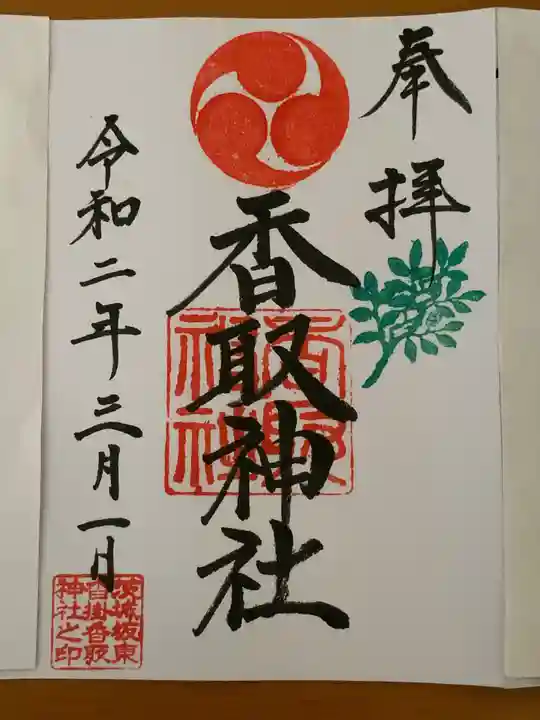 奉拝
香取神社
香取神社
令和二年三月一日
茨城坂東
沓掛香取
神社之印